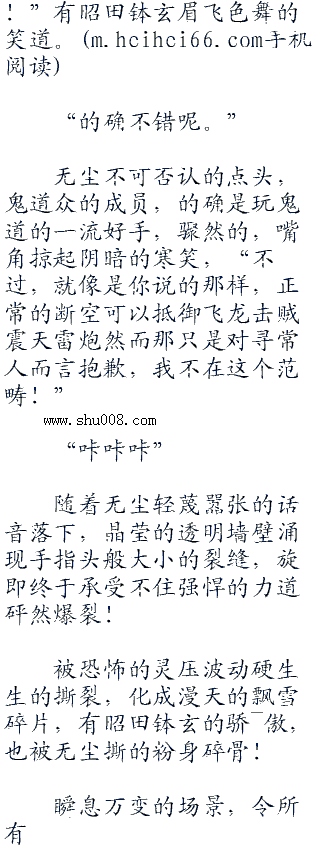 ！”有昭田钵玄眉飞色舞的
笑道。(m.hcihci66.com手机
阅读)
“的确不错呢。”
无尘不可否认的点头，
鬼道众的成员，的确是玩鬼
道的一流好手，骤然的，嘴
角掠起阴暗的寒笑，“不
过，就像是你说的那样，正
常的断空可以抵御飞龙击贼
震天雷炮然而那只是对寻常
人而言抱歉，我不在这个范
畴！”
www.shu008.com
“咔咔咔”
随着无尘轻蔑嚣张的话
音落下，晶莹的透明墙壁涌
现手指头般大小的裂缝，旋
即终于承受不住强悍的力道
砰然爆裂！
被恐怖的灵压波动硬生
生的撕裂，化成漫天的飘雪
碎片，有昭田钵玄的骄¯傲，
也被无尘撕的粉身碎骨！
瞬息万变的场景，令所
有